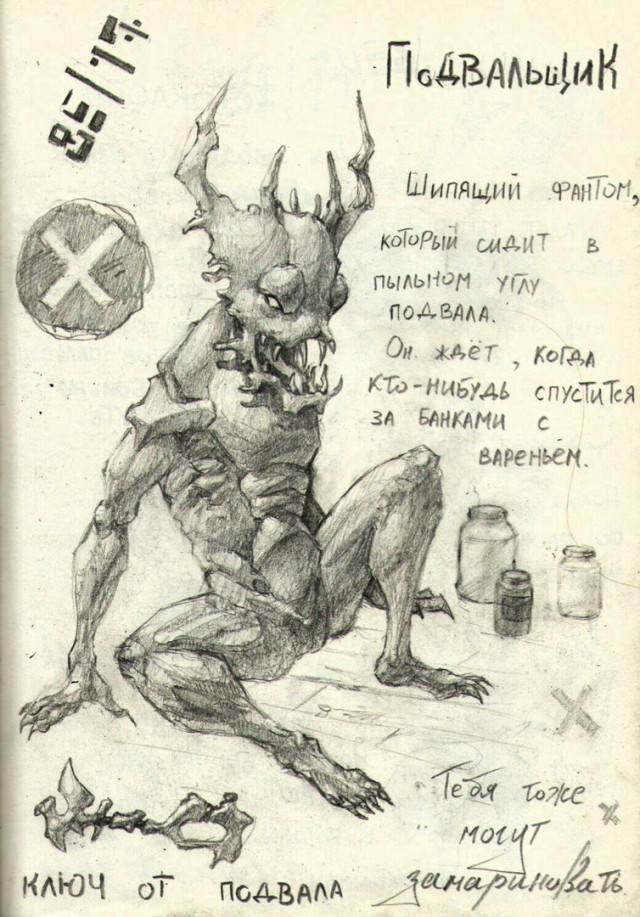 ПОДВАЛЬЩИК
Шипящий фантом,
который сидит в
пыльном углу
подвала.
Он ждёт, когда
кто-нибудь спустится
за банками с
вареньем.
Тебя тоже
могут
замариновать
КЛЮЧ ОТ ПОДВАЛА